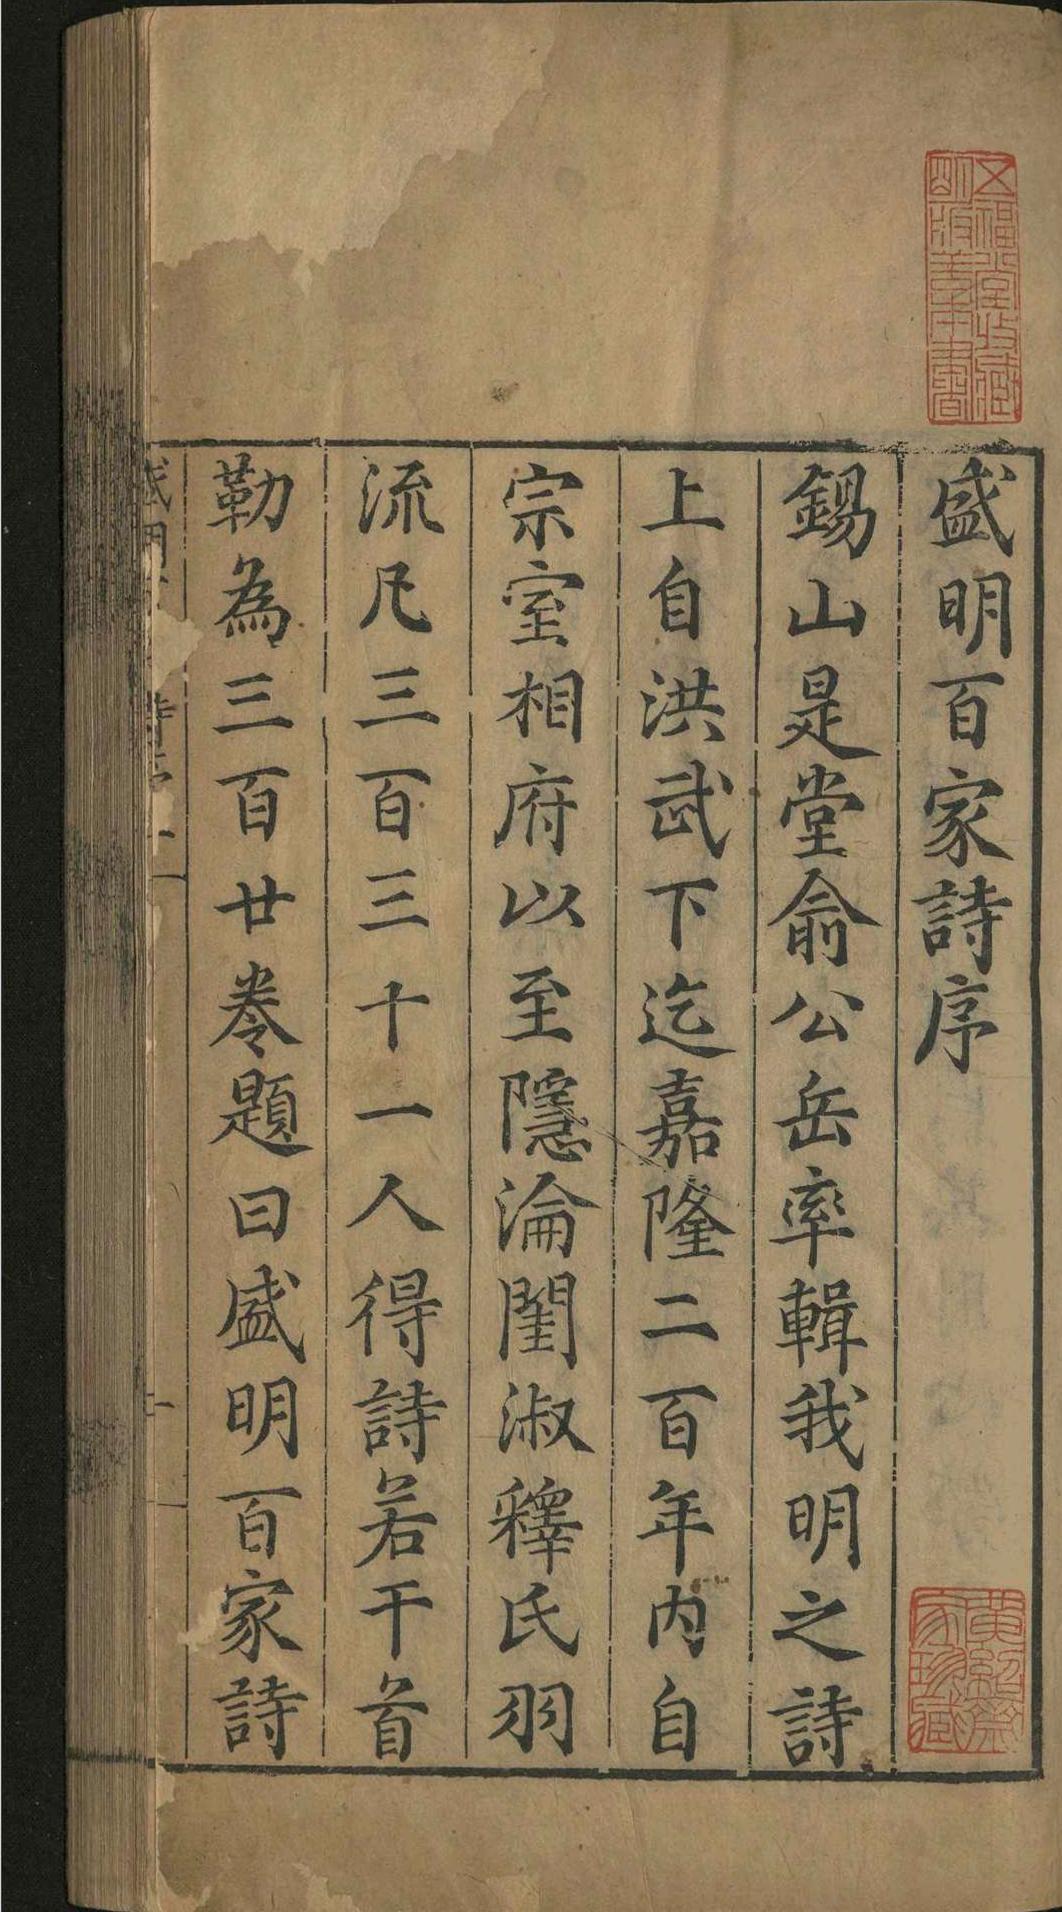 盛明百家詩序
錫山是堂俞公岳率輯我明之詩
上自洪武下迄嘉隆二百年内自
宗室相府以至隱淪閨淑釋氏羽
流凡三百三十一人得詩若干首
勒為三百廿卷題曰盛明百家詩
五福堂收藏
明版善本書
黄紹齋
家珍藏